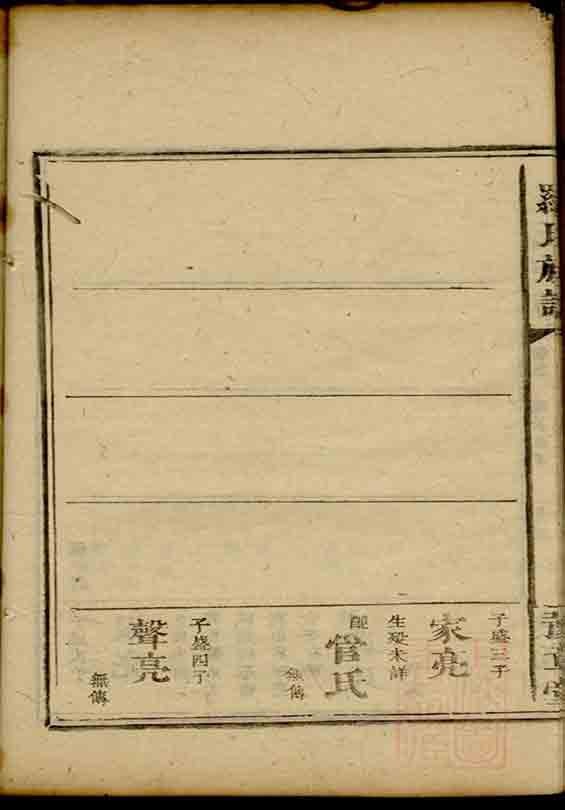 羅氏族譜
子盛三子
家亮
生歿未詳
配
管氏
無傳
子盛四子
聲亮
無傳